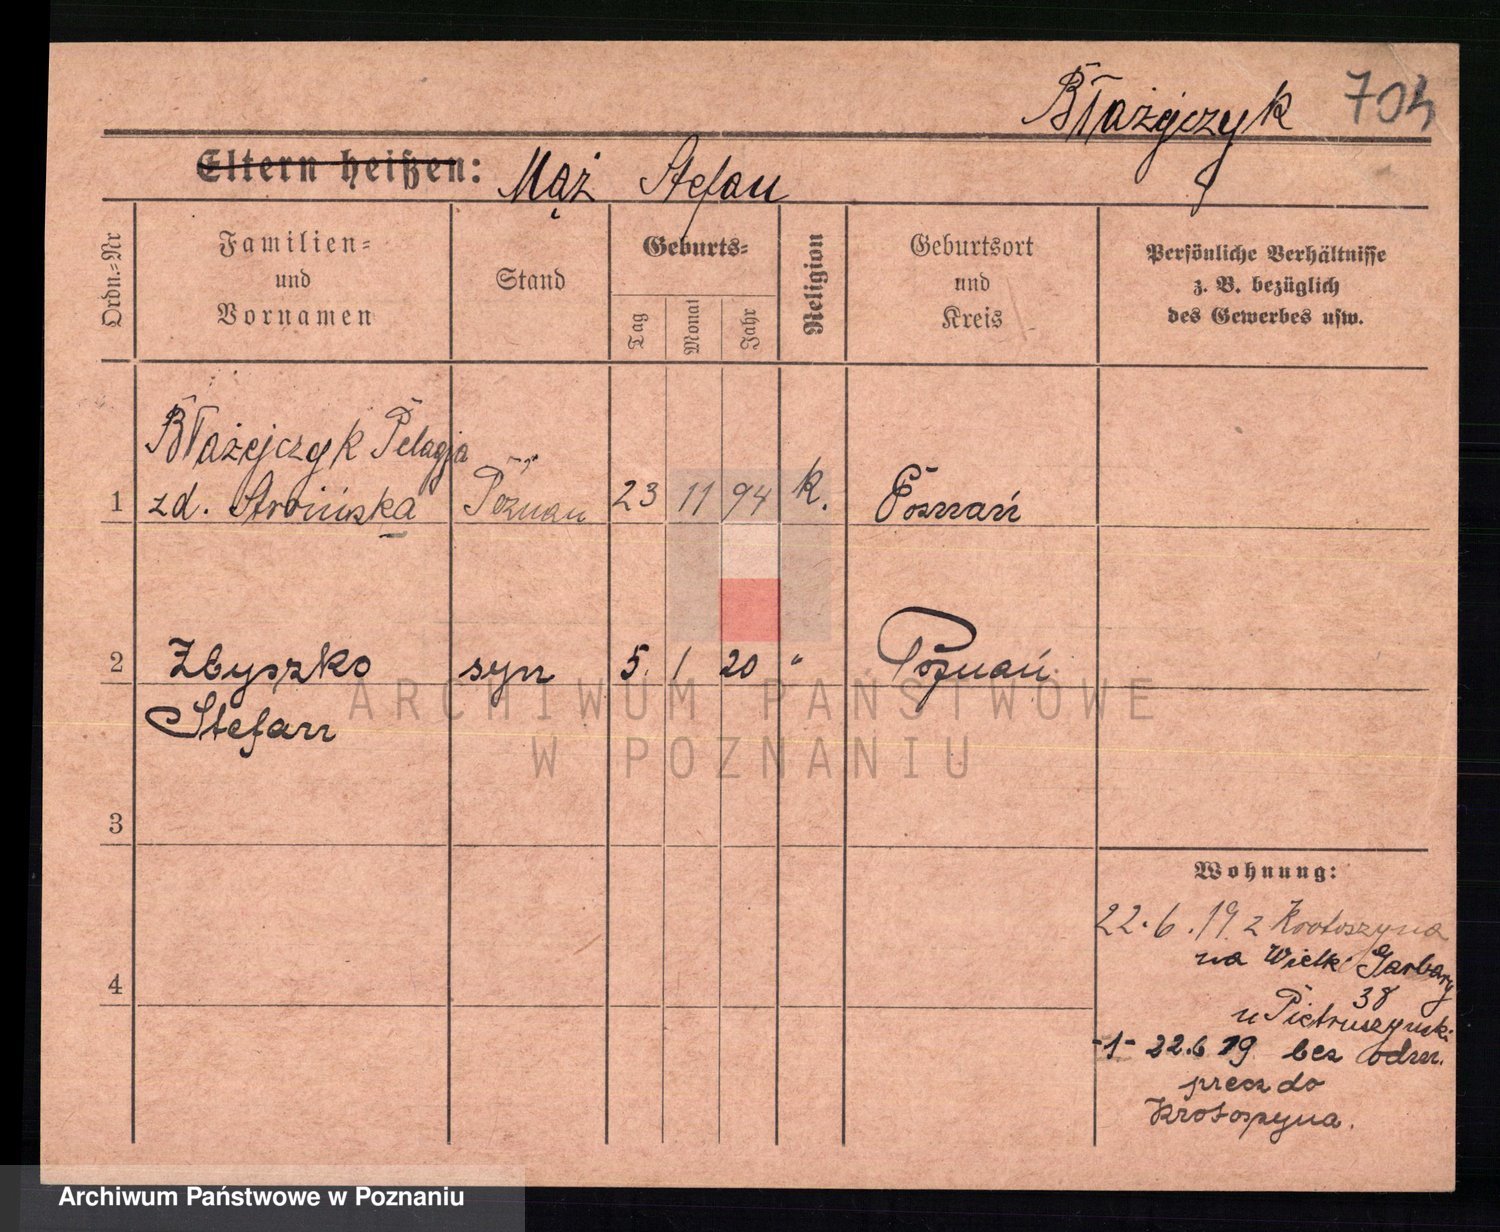 Błażejczyk 704
Eltern heißen: Mąż Stefan
Ordn.=Nr
Familien=
und
Vornamen
Stand
Geburts=
Tag
Monat
Jahr
Religion
Geburtsort
und
Kreis
Persönliche Verhältnisse
z. B. bezüglich
des Gewerbes usw.
Błażejczyk Pelagja
1 zd. Stroińska Poznań 23 11 94 k. Poznań
2 Zbyszko syn 5. 1 20 " Poznań
Stefan
3
4
Wohnung:
22.6.19 z Krotoszyna
na Wielki Garbary
38
u Pietruszyński
-1- 22.6 19 bez odm.
precz do
Krotoszyna.
ARCHIWUM PAŃSTWOWE
W POZNANIU
Archiwum Państwowe w Poznaniu